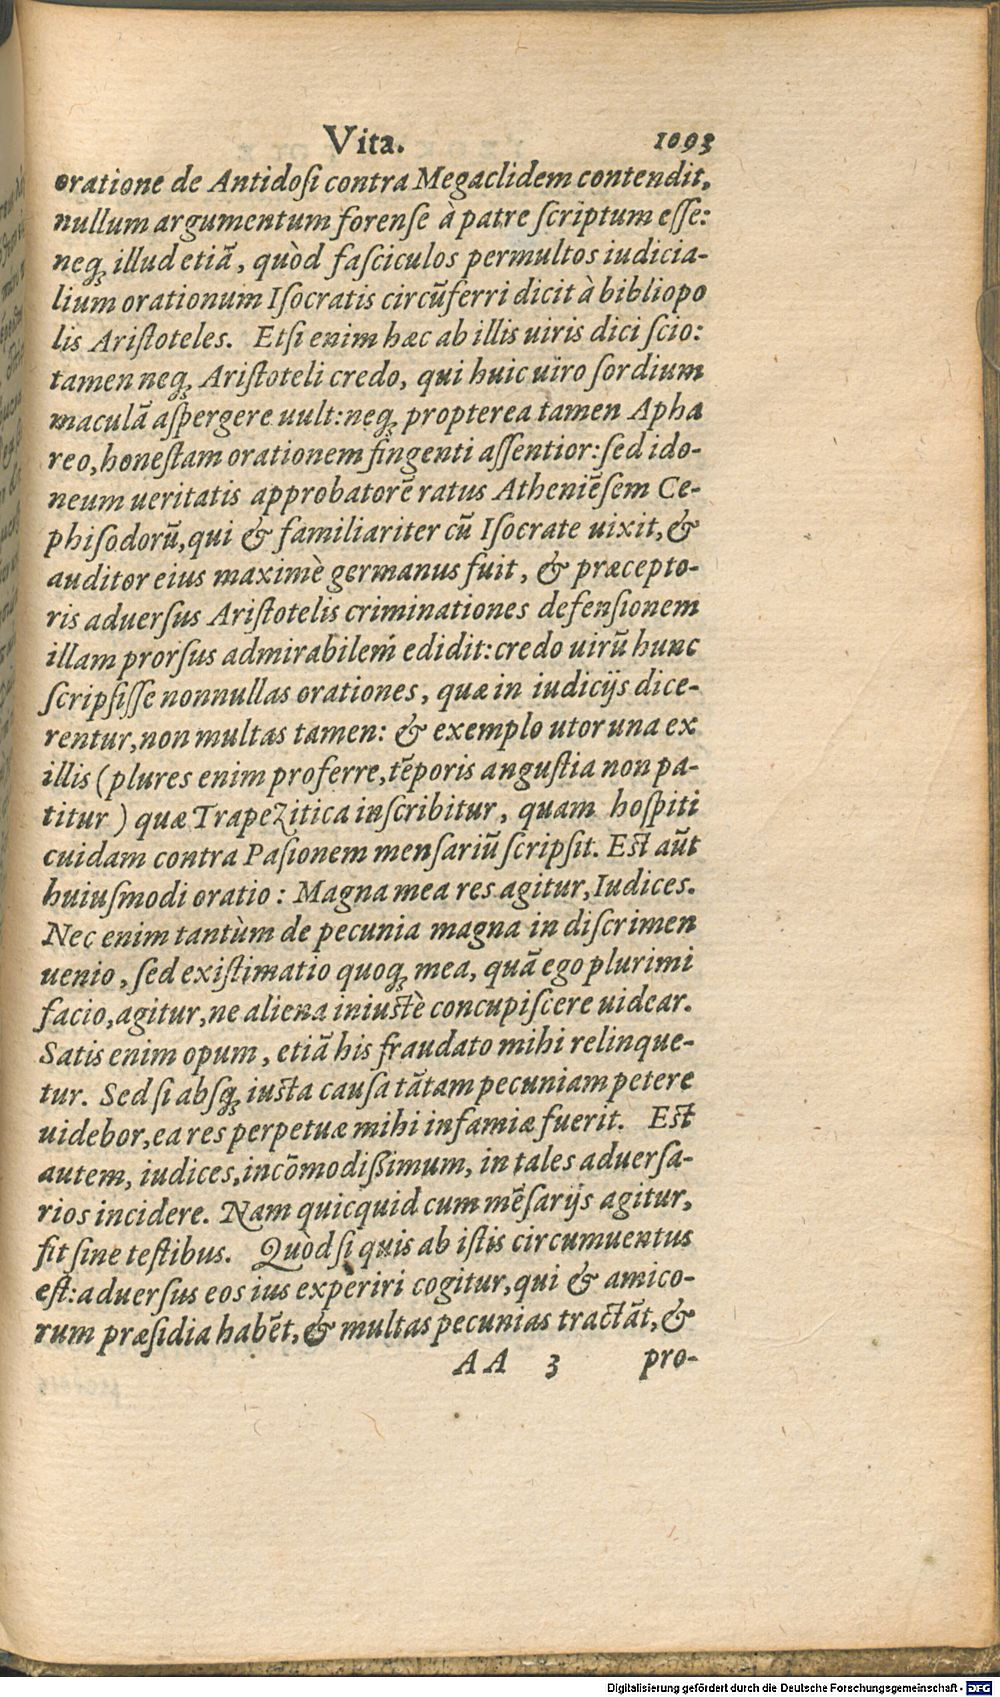 Vita. 1093
oratione de Antidoſi contra Megaclidem contendit,
nullum argumentum forenſe à patre ſcriptum eſſe:
neq́; illud etiã, quòd faſciculos permultos iudicia-
lium orationum Iſocratis circũferri dicit à bibliopo
lis Ariſtoteles. Etſi enim hæc ab illis uiris dici ſcio:
tamen neq; Ariſtoteli credo, qui huic uiro ſordium
maculã aſpergere uult: neq; propterea tamen Apha
reo, honeſtam orationem fingenti aſſentior: ſed ido-
neum ueritatis approbatorẽ ratus Atheniẽſem Ce-
phiſodorũ, qui & familiariter cũ Iſocrate uixit, &
auditor eius maximè germanus fuit, & præcepto-
ris aduerſus Ariſtotelis criminationes defenſionem
illam prorſus admirabilem edidit: credo uirũ hunc
ſcripſiſſe nonnullas orationes, quæ in iudicijs dice-
rentur, non multas tamen: & exemplo utor una ex
illis (plures enim proferre, tẽporis anguſtia non pa-
titur) quæ Trapezitica inſcribitur, quam hoſpiti
cuidam contra Paſionem menſariũ ſcripſit. Eſt aũt
huiuſmodi oratio: Magna mea res agitur, Iudices.
Nec enim tantùm de pecunia magna in diſcrimen
uenio, ſed exiſtimatio quoq; mea, quã ego plurimi
facio, agitur, ne aliena iniuſtè concupiſcere uidear.
Satis enim opum, etiã his fraudato mihi relinque-
tur. Sed ſi abſq; iuſta cauſa tãtam pecuniam petere
uidebor, ea res perpetuæ mihi infamiæ fuerit. Eſt
autem, iudices, incõmodißimum, in tales aduerſa-
rios incidere. Nam quicquid cum mẽſarijs agitur,
fit ſine teſtibus. Quòd ſi quis ab iſtis circumuentus
eſt: aduerſus eos ius experiri cogitur, qui & amico-
rum præſidia habẽt, & multas pecunias tractãt, &
AA 3 pro-
Digitalisierung gefördert durch die Deutsche Forschungsgemeinschaft - DFG